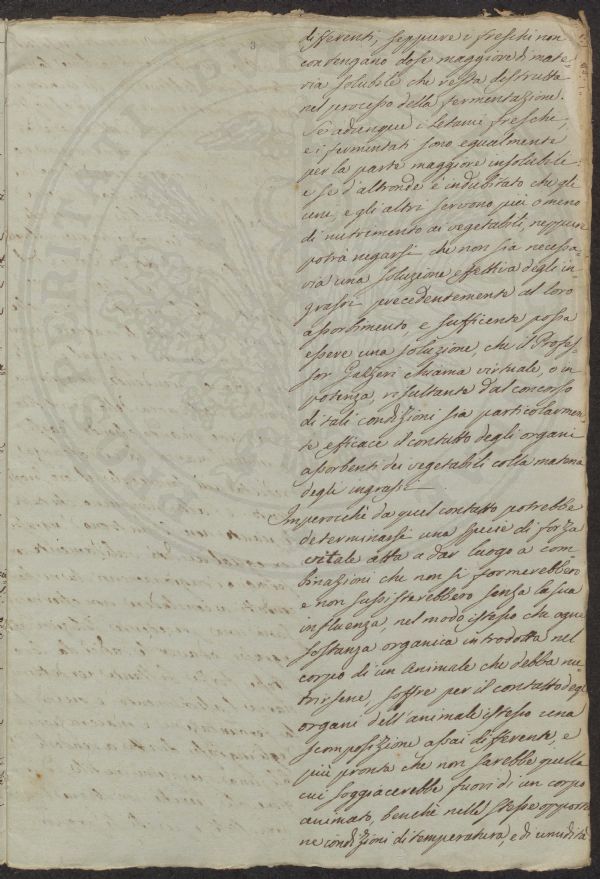 3
differenti, seppure i freschi non
contengano dose maggiore di mate-
ria solubile che resta distrutta
nel processo della fermentazione.
Se adunque i Letami freschi,
e i fermentati sono egualmente
per la parte maggiore insolubili
e se d'altronde è indubitato che gli
uni, e gli altri servono più o meno
di nutrimento ai vegetabili, neppure
potrà negarsi che non sia necessa-
ria una soluzione effettiva degli in-
grassi precedentemente al loro
assorbimento, e sufficente possa
essere una soluzione, che il Profes-
sor Gazzeri chiama virtuale, o in
potenza, risultante dal concorso
di tali condizioni sia particolarmen-
te efficace il contatto degli organi
assorbenti dei vegetabili colla materia
degli ingrassi.
Imperocchè da quel contatto potrebbe
determinarsi una specie di forza
vitale atta a dar luogo a com-
binazioni che non si formerebbero
e non sussisterebbero senza la sua
influenza, nel modo istesso che ogni
sostanza organica introdotta nel
corpo di un Animale che debba nu-
trirsene, soffre per il contatto degli
organi dell'animale istesso una
scomposizione assai differente, e
più pronta che non sarebbe quella
cui soggiacerebbe fuori di un corpo
animato, benchè nelle stesse opportu-
ne condizioni di temperatura, e di umidità